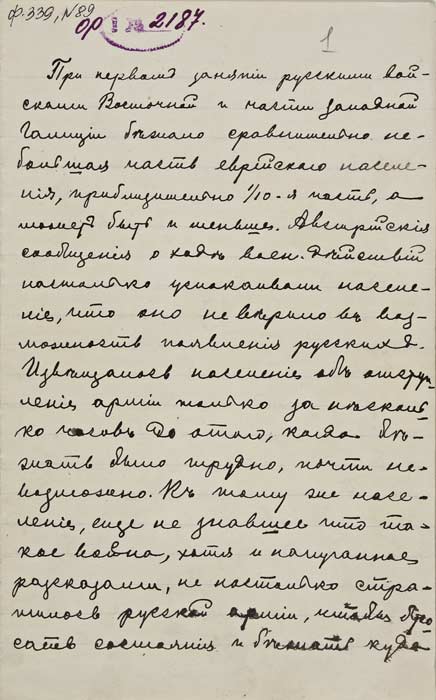 ф. 339, №89
ор 2187.
1
При первомъ занятіи русскими вой-
сками Восточной и части западной
Галиціи бѣжало сравнительно не-
большая часть еврейскаго населе-
нія, приблизительно 1/10-я часть, а
можетъ быть и меньше. Австрійскія
сообщенія о ходѣ воен. дѣйствій
настолько успокаивали населе-
ніе, что оно не вѣрило въ воз-
можность появленія русскихъ.
Извѣщалось населеніе объ отступ-
леніи арміи только за нѣсколь-
ко часовъ до этого, когда бѣ-
жать было трудно, почти не-
возможно. Къ тому же насе-
леніе, еще не знавшее что та-
кое война, хотя и напуганное
разсказами, не настолько стра-
шилось русской арміи, чтобы бро-
сать состоянія и бѣжать куда